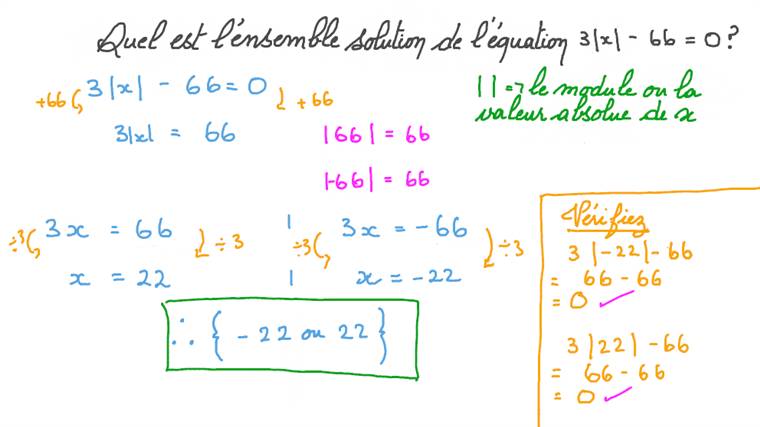 Quel est l'énsemble solution de l'équation 3|x| - 66 = 0?
+66 3|x| - 66 = 0 +66
| | => le module ou la
valeur absolue de x
3|x| = 66
|66| = 66
|-66| = 66
÷3 3x = 66 ÷3
x = 22
|
|
÷3 3x = -66 ÷3
x = -22
∴ { -22 ou 22 }
Vérifiez
3|-22| - 66
= 66 - 66
= 0 ✓
3|22| - 66
= 66 - 66
= 0 ✓